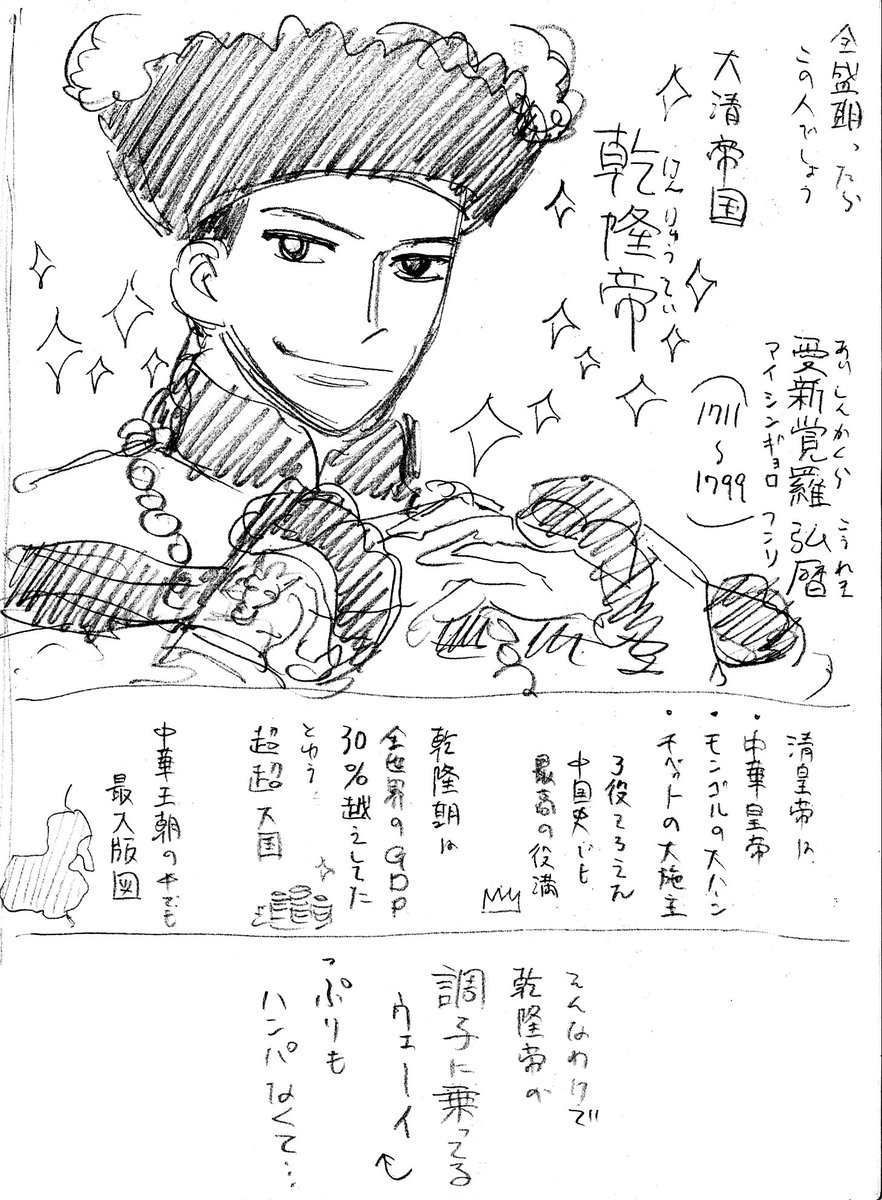 全盛期ったら
この人でしょう
大清帝国
けんりゅうてい
乾隆帝
あいしんかくら こうれき
愛新覚羅 弘暦
アイシンギョロ フンリ
(1711～1799)
清皇帝は
・中華皇帝
・モンゴルの大ハーン
・チベットの大施主
3役そろえた
中国史でも
最高の役満
乾隆朝は
全世界のGDP
30%越えしてた
とゆう
超超大国
中華王朝の中でも
最大版図
そんなわけで
乾隆帝の
調子に乗ってる
ウェーイ
っぷりも
ハンパなくて…